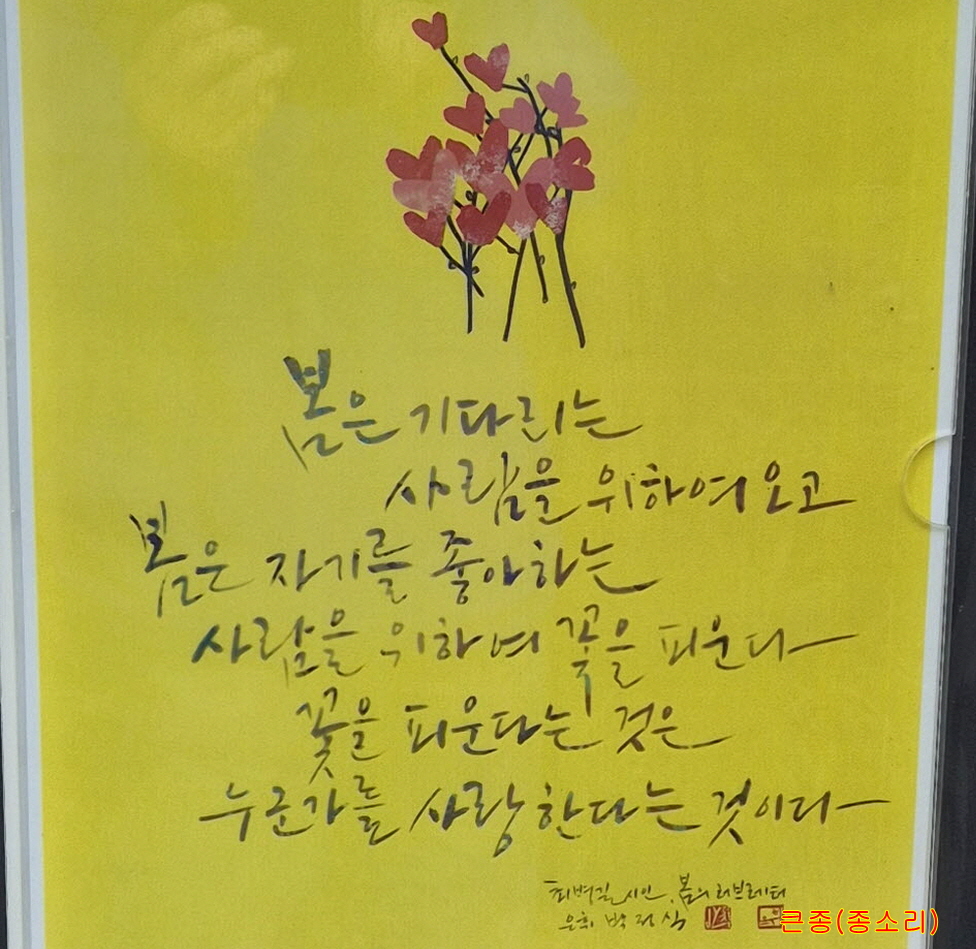 봄은 기다리는
사람을 위하여 오고
봄은 자기를 좋아하는
사람을 위하여 꽃을 피운다
꽃을 피운다는 것은
누군가를 사랑한다는 것이다
최병길 시인, 봄의 러브레터
은희 박정식
큰종(종소리)